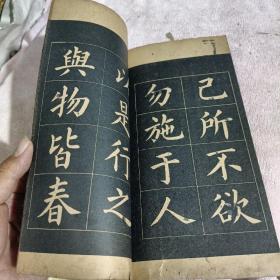 己所不欲
勿施于人
以是行之
與物皆春